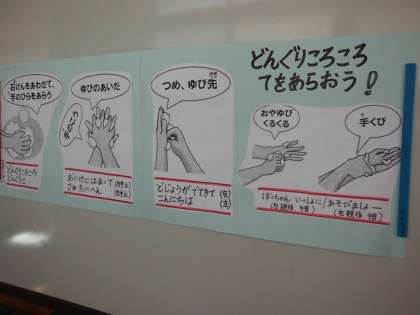 どんぐりころころ
てをあらおう!
石けんをあわだて、
手のひらをあらう
どんぐりころころ
どんぐりに
ゆびのあいだ
手のこう
おいけにはまって
さあたいへん
つめ、ゆび先
どじょうがでてきて(右)
こんにちは(左)
おやゆび
くるくる
ぼっちゃん いっしょに
手くび
あそびましょー